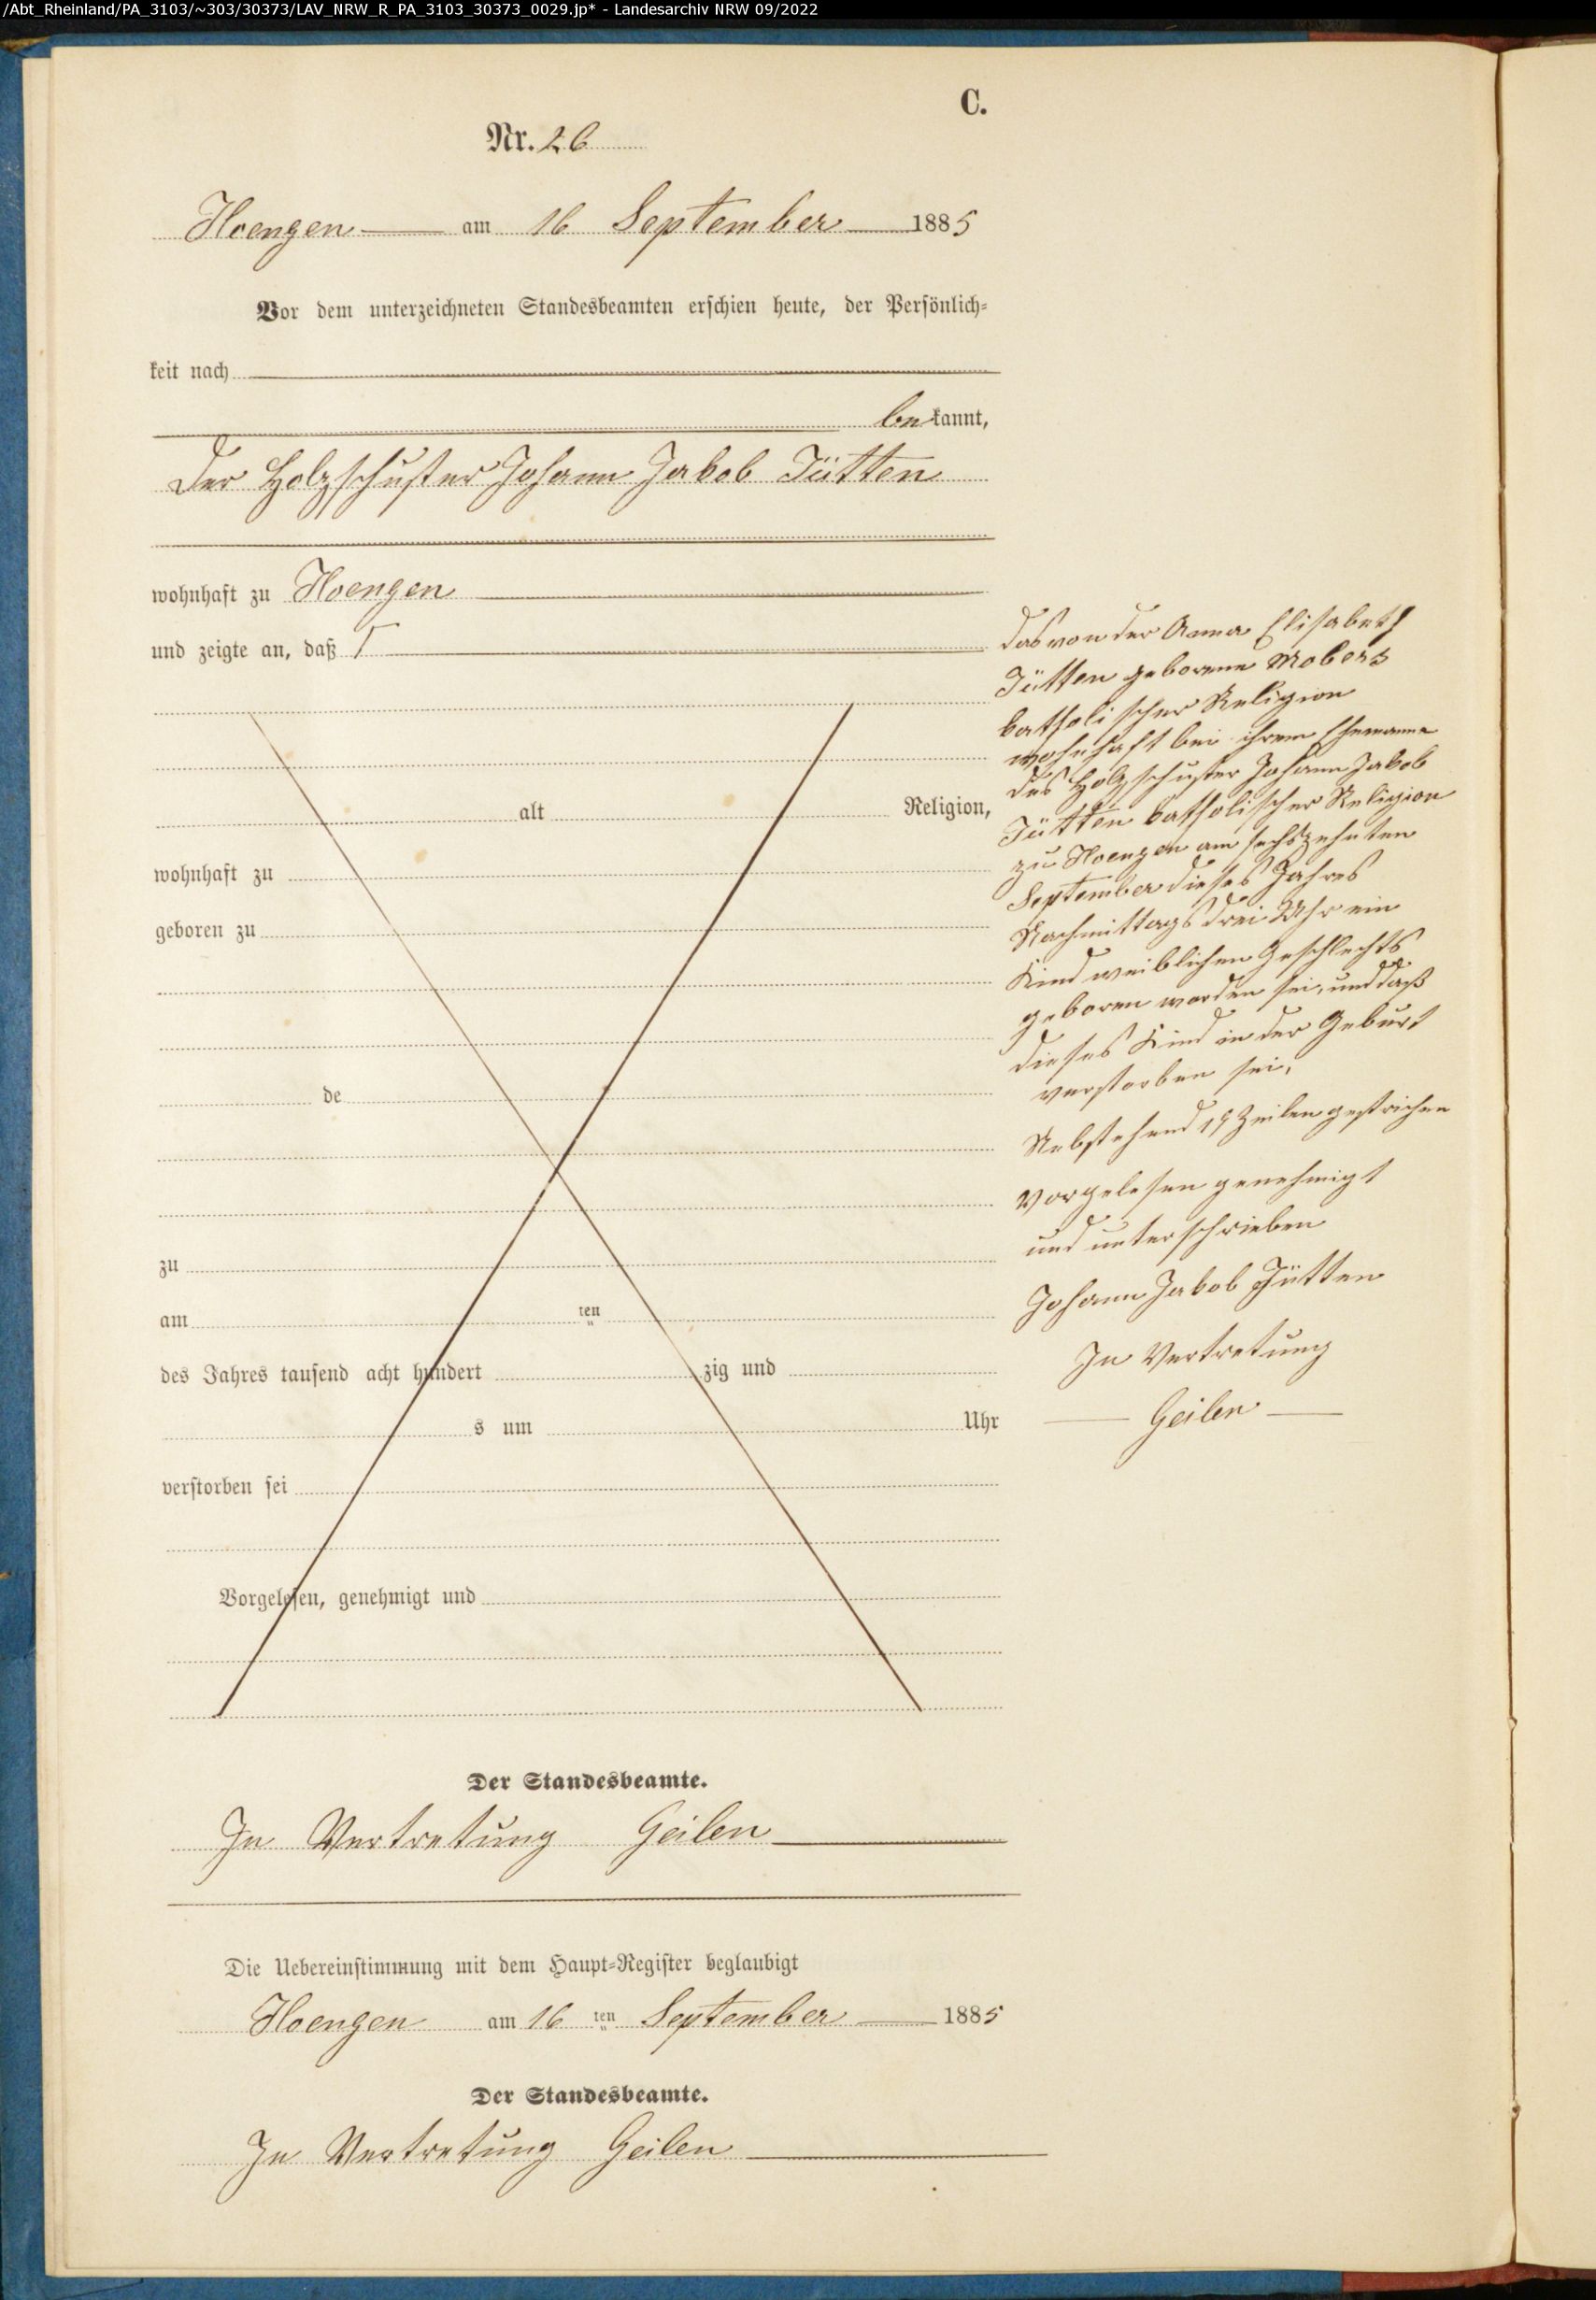 /Abt_Rheinland/PA_3103/~303/30373/LAV_NRW_R_PA_3103_30373_0029.jp* - Landesarchiv NRW 09/2022
C.
Nr. 26
Hoengen am 16 September 1885
Vor dem unterzeichneten Standesbeamten erschien heute, der Persönlich-
keit nach
bekannt,
der Holzschuster Johann Jakob Jütten
wohnhaft zu Hoengen
und zeigte an, daß
alt Religion,
wohnhaft zu
geboren zu
de
zu
am ten
des Jahres tausend acht hundert zig und
s um Uhr
verstorben sei
Vorgelesen, genehmigt und
das von der Anna Elisabeth
Jütten geborene Mobers
katholischer Religion
wohnhaft bei ihrem Ehemanne
des Holzschuster Johann Jakob
Jütten katholischer Religion
zu Hoengen am sechszehnten
September dieses Jahres
Nachmittags drei Uhr ein
Kind weiblichen Geschlechts
geboren worden sei, und daß
dieses Kind in der Geburt
verstorben sei,
Nebstehend 19 Zeilen gestrichen
Vorgelesen genehmigt
und unterschrieben
Johann Jakob Jütten
In Vertretung
Geilen
Der Standesbeamte.
In Vertretung Geilen
Die Uebereinstimmung mit dem Haupt-Register beglaubigt
Hoengen am 16 ten September 1885
Der Standesbeamte.
In Vertretung Geilen